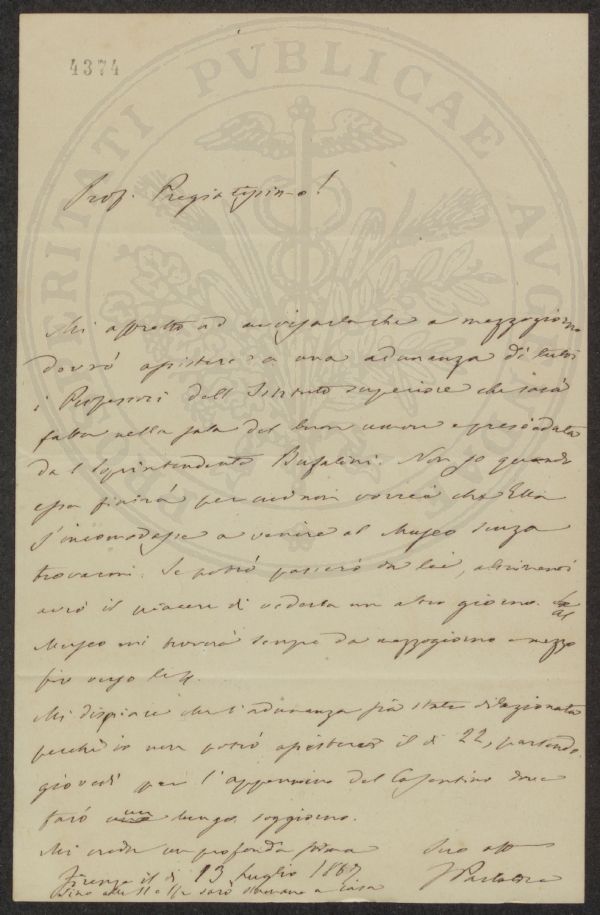 4374
PROSPERITATI PVBLICAE AVGENDAE
Prof. Pregiatissimo!
Mi affretto ad avvisarla che a mezzogiorno
dovrò assistere a una adunanza di tutti
i Professori dell'Istituto superiore che sarà
fatta nella sala del buon umore e presieduta
dal Soprintendente Bufalini. Non so quando
essa finirà per cui non vorrei che Ella
s'incomodasse a venire al Museo senza
trovarmi. Se potrò passerò da lei, altrimenti
avrò il piacere di vederla un altro giorno. Al
Museo mi troverà sempre da mezzogiorno e mezzo
fin verso le 4.
Mi dispiace che l'adunanza sia stata dilazionata
perchè io non potrò assistere il dì 22, partendo
giovedì per l'appennino del Casentino dove
farò un lungo soggiorno.
Mi creda con profonda stima
Suo aff
Firenze il dì 13 Luglio 1867
Fino alle 11 e 1/2 sarò stamane a casa
F Parlatore